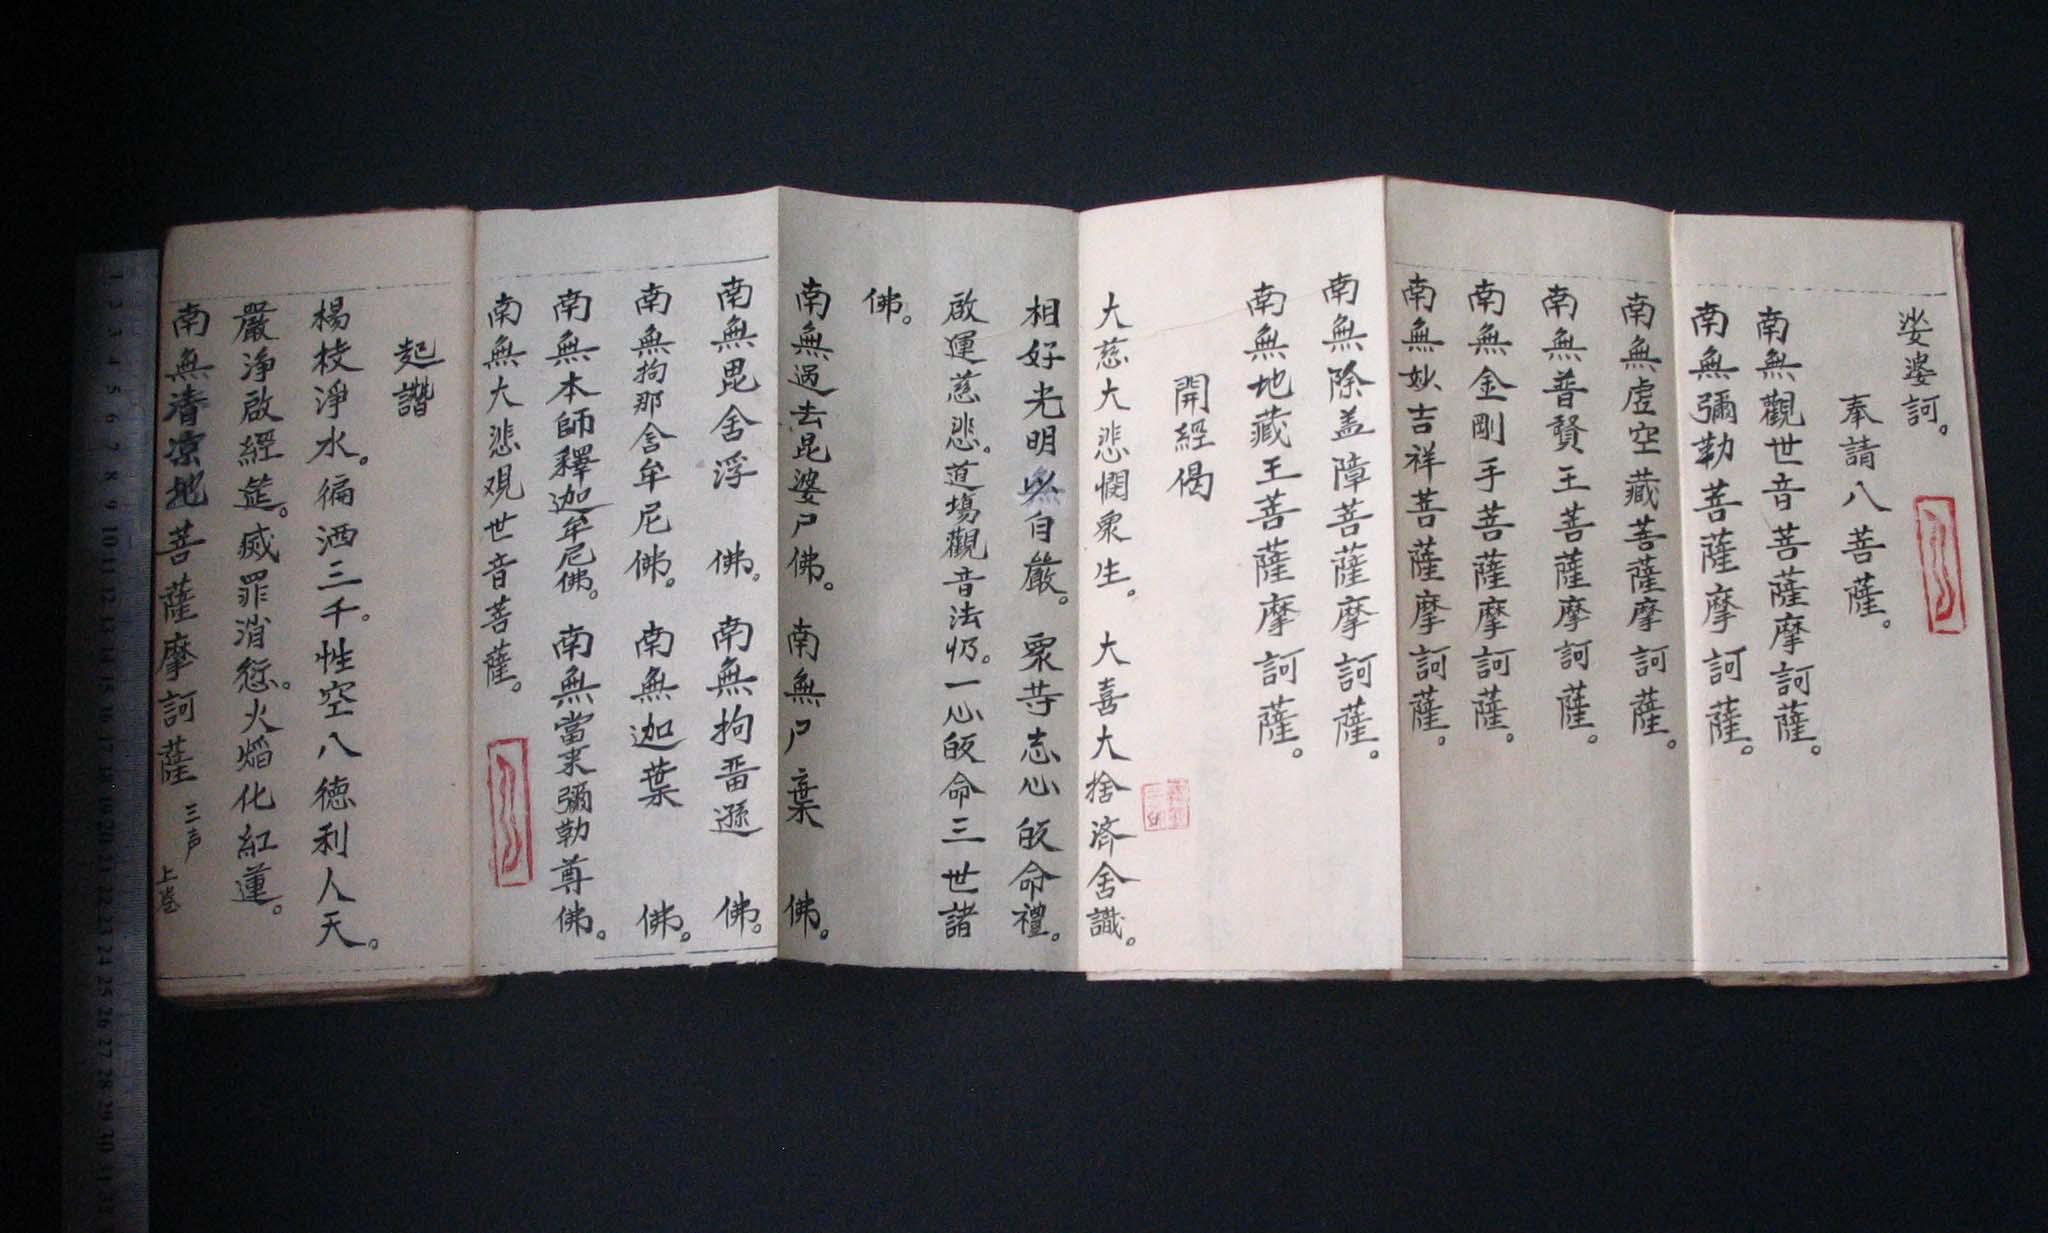 娑婆訶。
奉請八菩薩。
南無觀世音菩薩摩訶薩。
南無彌勒菩薩摩訶薩。
南無虛空藏菩薩摩訶薩。
南無普賢王菩薩摩訶薩。
南無金剛手菩薩摩訶薩。
南無妙吉祥菩薩摩訶薩。
南無除盖障菩薩摩訶薩。
南無地藏王菩薩摩訶薩。
開經偈
大慈大悲憫衆生。大喜大捨济舍識。
相好光明以自嚴。衆等志心皈命禮。
啟運慈悲。道塲觀音法忏。一心皈命三世諸
佛。
南無過去毘婆尸佛。南無尸棄佛。
南無毘舍浮佛。南無拘畱遜佛。
南無拘那含牟尼佛。南無迦葉佛。
南無本師釋迦牟尼佛。南無當来彌勒尊佛。
南無大悲观世音菩薩。
起讚
楊枝淨水。徧洒三千。性空八德利人天。
嚴净啟經筵。滅罪消愆。火焰化紅蓮。
南無清凉地菩薩摩訶薩 三声
上
1 2 3 4 5 6 7 8 9 10 11 12 13 14 15 16 17 18 19 20 21 22 23 24 25 26 27 28 29 30 31 32